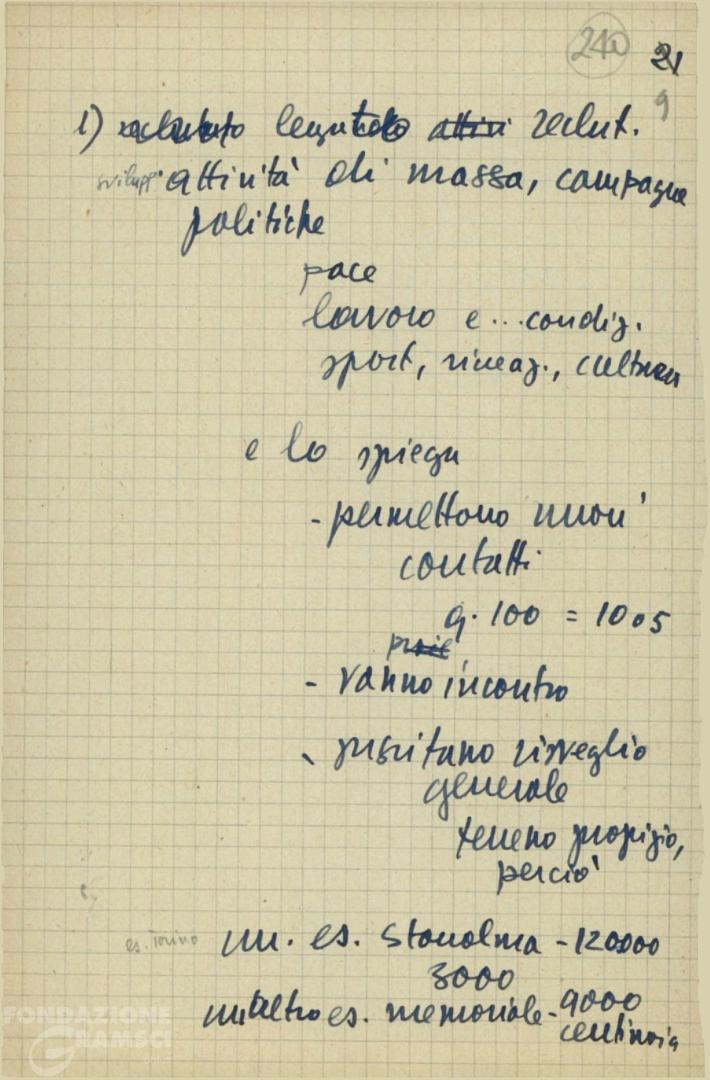 240 21
9
1) reclutato legato attivi reclut.
svilupp. attività di massa, campagne
politiche
pace
lavoro e...condiz.
sport, ricreaz., cultura
e lo spiega
- permettono nuovi
contatti
9.100 = 1005
- vanno incontro
- suscitano risveglio
generale
terreno propizio,
perciò
es. Torino un. es. Stoccolma - 120000
3000
un altro es. memoriale - 9000
centinaia
FONDAZIONE
GRAMSCI